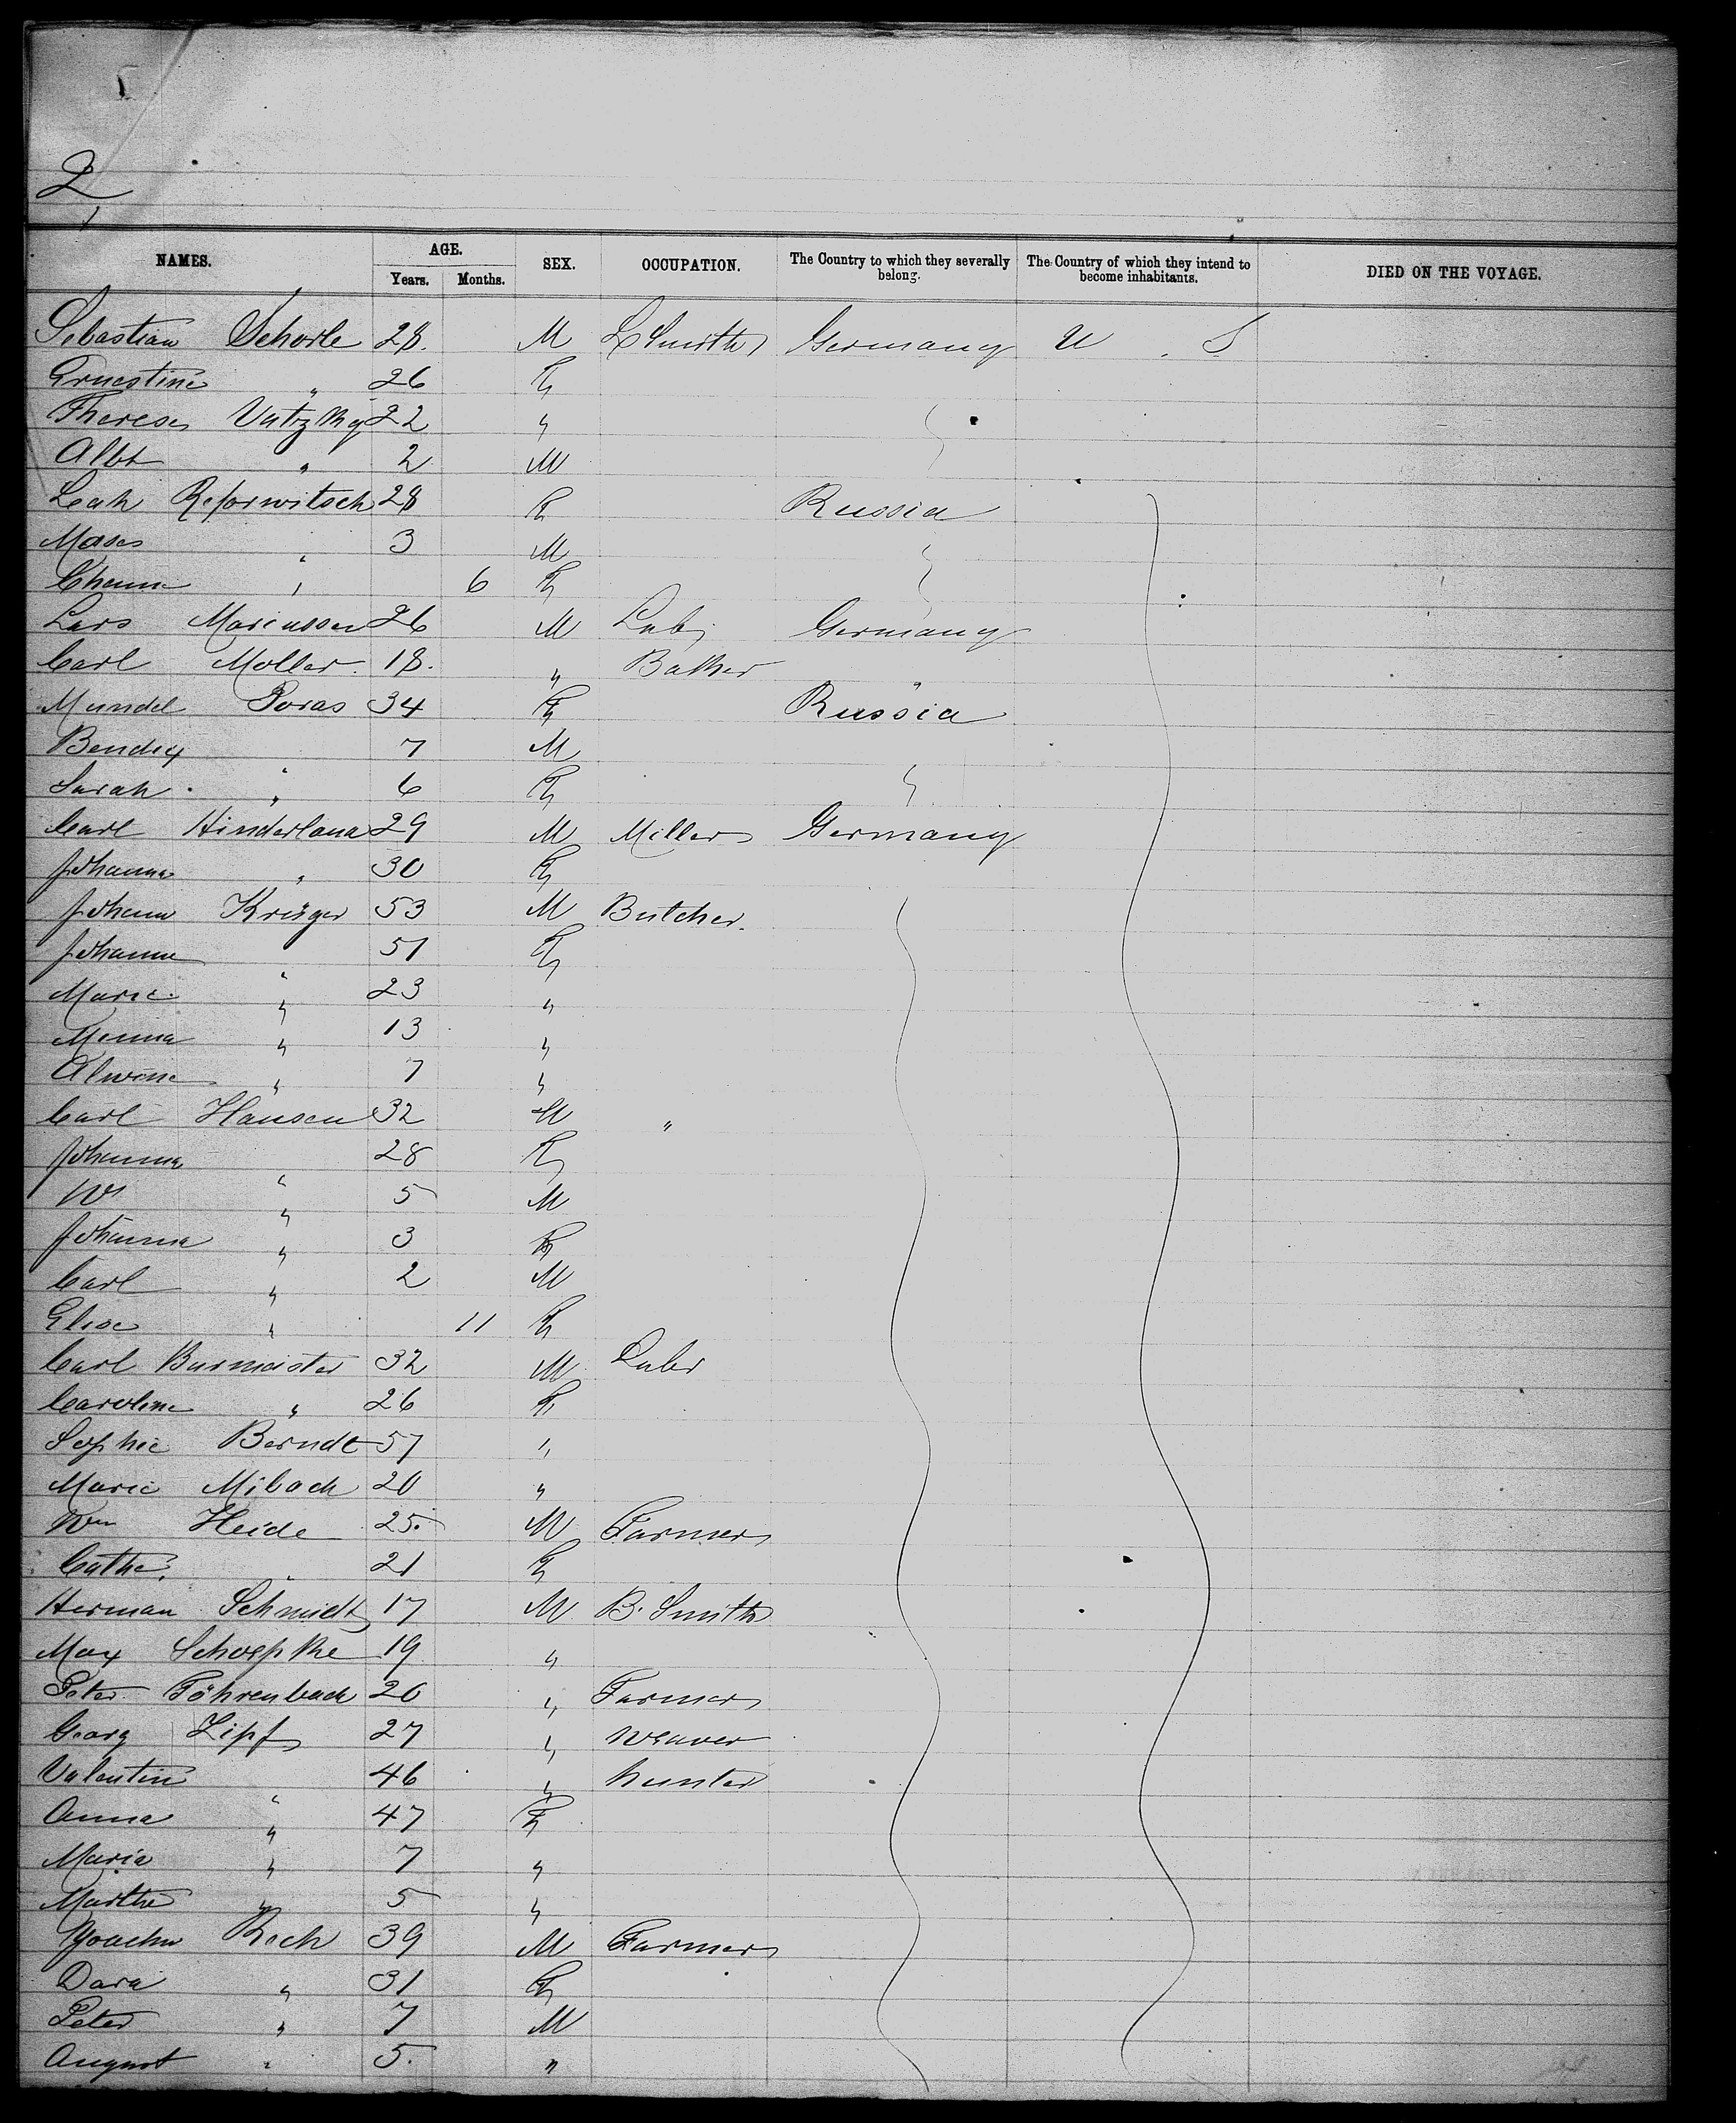 2
NAMES. AGE. Years. Months. SEX. OCCUPATION. The Country to which they severally belong. The Country of which they intend to become inhabitants. DIED ON THE VOYAGE.
Sebastian Schorle 28. M L Smith Germany U. S
Ernestine " 26 F
Therese 22 "
Albt " 2 M
Leah 28 F Russia
Moses " 3 M "
" 6 F
Lars Mariussen 26 M Labr Germany
Carl Moller 18. " Baker "
Mundel Poras 34 F Russia
Bendix " 7 M
Sarah " 6 F "
Carl 29 M Miller Germany
Johanna " 30 F
Johann Krüger 53 M Butcher.
Johanna " 51 F
Marie " 23 "
Menna " 13 "
Alwine " 7 "
Carl Hansen 32 M "
Johanna " 28 F
Wm " 5 M
Johanna " 3 F
Carl " 2 M
Elise " 11 F
Carl Burmeister 32 M Labr
Caroline " 26 F
Sophie Berndt 57 "
Marie Mibach 20 "
Wm Heide 25. M Farmer
Cathe. " 21 F
Herman Schmidt 17 M B. Smith
Max Schoepke 19 "
Peter Föhrenbach 20 " Farmer
Georg Zipf 27 " Weaver
Valentin " 46 " hunter
Anna " 47 F
Maria " 7 "
Marthe " 5 "
Yoachm Rech 39 M Farmer
Dora " 31 F
Peter " 7 M
August " 5. "